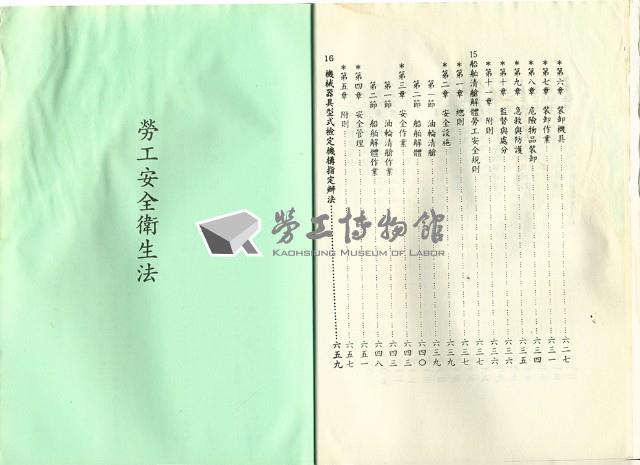 *第六章 裝卸機具……六二七
*第七章 裝卸作業……六三一
*第八章 危險物品裝卸……六三四
*第九章 急救與防護……六三五
*第十章 監督與處分……六三六
*第十一章 附則……六三六
15 船舶清艙解體勞工安全規則……六三七
*第一章 總則……六三七
*第二章 安全設施……六三九
第一節 油輪清艙……六三九
第二節 船舶解體……六四〇
*第三章 安全作業……六四三
第一節 油輪清艙作業……六四三
第二節 船舶解體作業……六四八
*第四章 安全管理……六五一
*第五章 附則……六五七
16 機械器具型式檢定機構指定辦法……六五九
勞工安全衛生法
勞工博物館
KAOHSIUNG MUSEUM OF LABOR